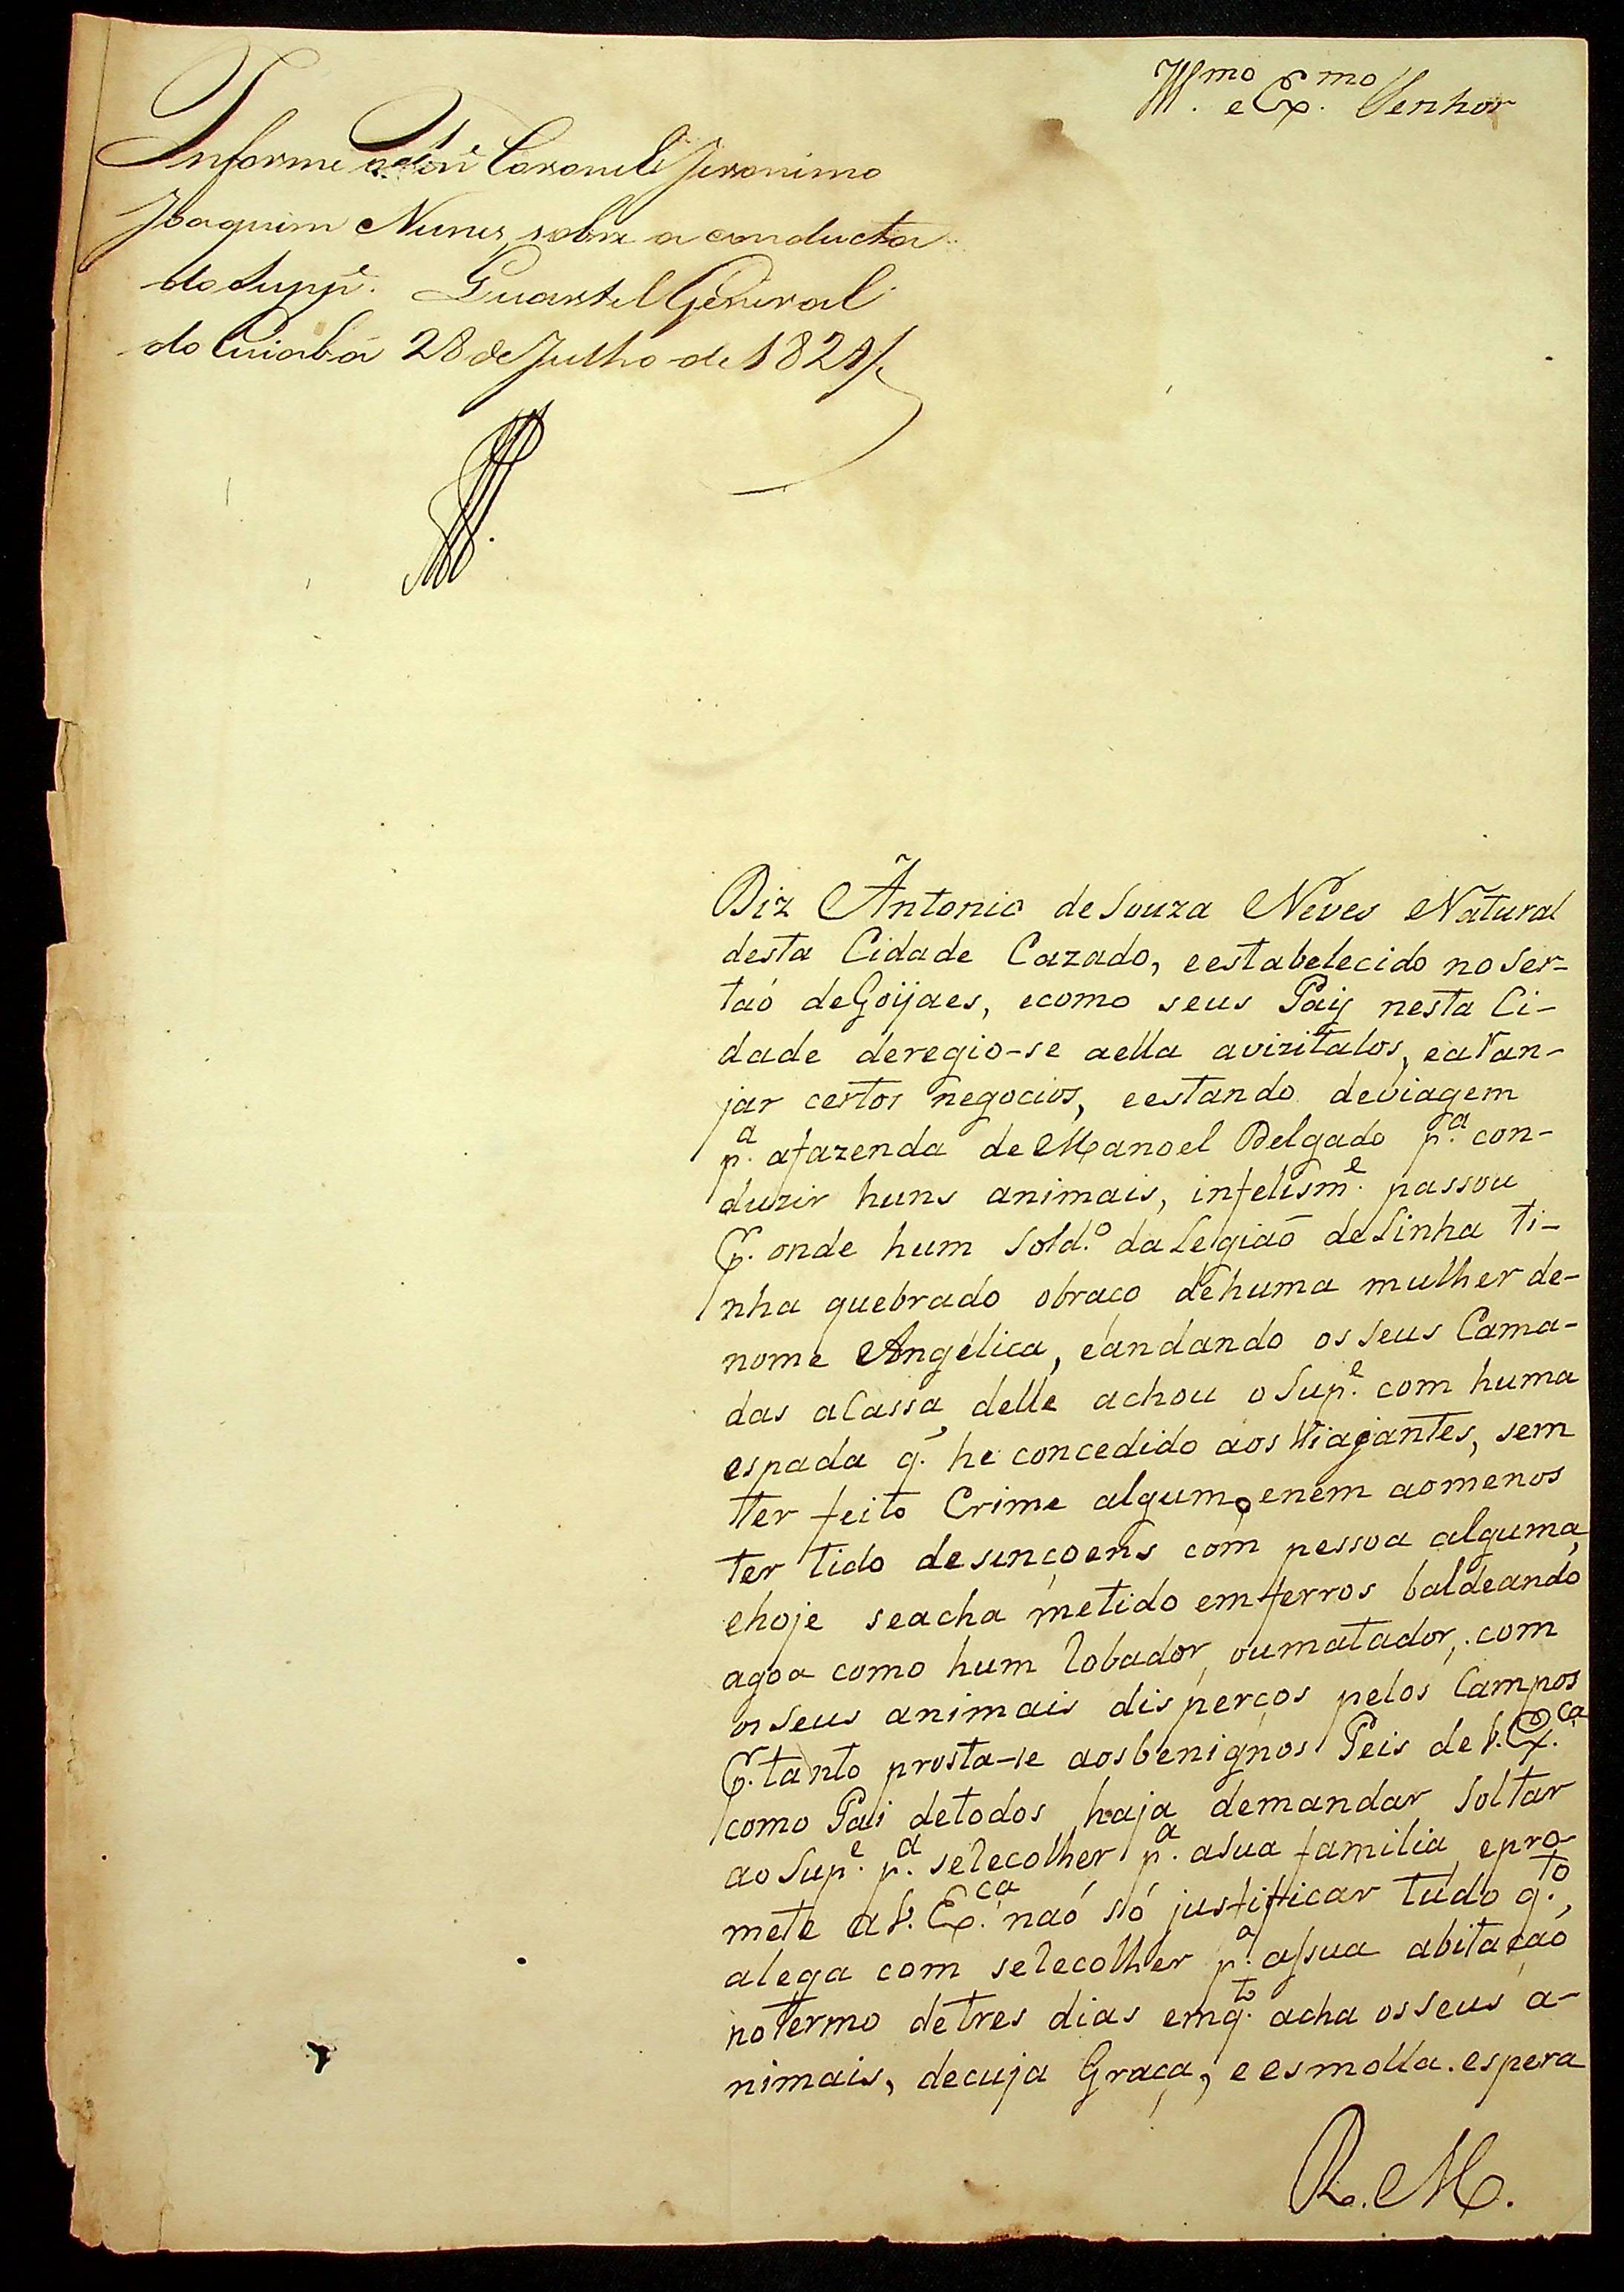 Ill.mo e Ex.mo Senhor
Informe o Ten.e Coronel Jeronimo
Joaquim Nunes sobre a conducta
do Supp.e Quartel General
do Cuiabá 28 de Julho de 182
Diz Antonio de Souza Neves Natural
desta Cidade Cazado, eestabelecido no Ser-
taó de Goijaes, ecomo seus Paiz nesta Ci-
dade deregio-se aella avizitalos, earan-
jar certos negocios, eestando deviagem
p.a afazenda de Manoel Delgado p.a con-
duzir huns animais, infelism.e passou
P. onde hum Sold.o da Legiaó de Linha ti-
nha quebrado obraço dehuma mulher de-
nome Angélica, eandando os seus Cama-
das acassa, delle achou o Sup.e com huma
espada q. he concedido aos Viajantes, sem
ter feito Crime algum, enem aomenos
ter tido desinçoens com pessoa alguma,
ehoje seacha metido emferros baldeando
agoa como hum Robador, oumatador, com
os seus animais disperços pelos Campos
P. tanto prosta-se aosbenignos Peis de V. Ex.ca
como Pai detodos haja demandar Soltar
ao Sup.e p.a seRecolher p.a aSua familia, epro-
mete a V. Ex.ca naó só justificar tudo q.to,
alega com seRecolher p.a asua abitaçaó
no termo detres dias emq.to acha osseus a-
nimais, decuja Graça, e esmolla. espera
R. M.